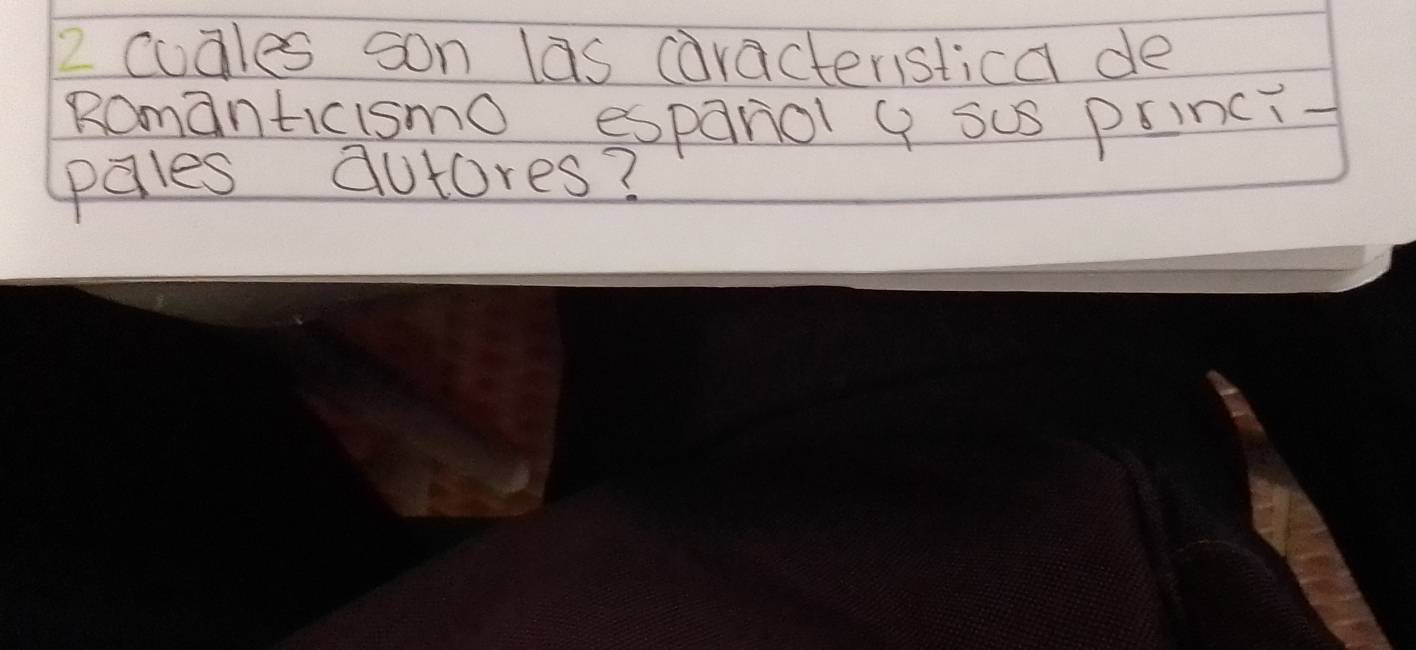 2 cuales son las caracteristica de
Romanticismo español y sus princi-
pales autores?